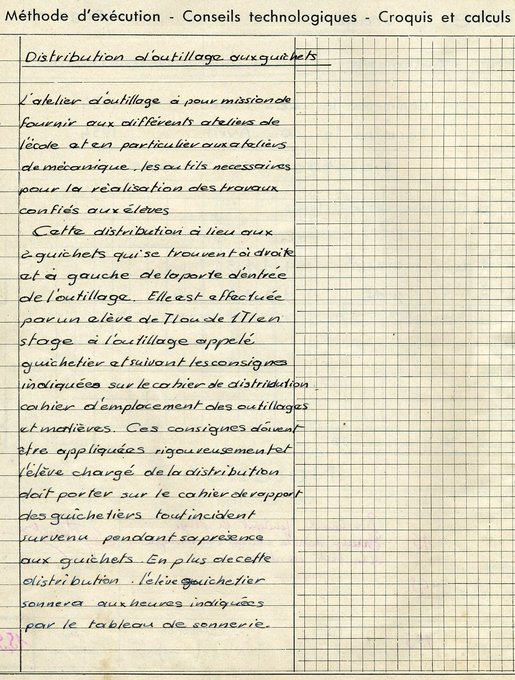 Méthode d'exécution - Conseils technologiques - Croquis et calculs
Distribution d'outillage aux guichets
L'atelier d'outillage à pour mission de
fournir aux différents ateliers de
l'école et en particulier aux ateliers
de mécanique, les outils necessaires
pour la réalisation des travaux
confiés aux élèves
Cette distribution à lieu aux
2 guichets qui se trouvent à droite
et à gauche de la porte d'entrée
de l'outillage. Elle est effectuée
par un elève de T1 ou de 1T1 en
stage à l'outillage appelé
guichetier et suivant les consignes
indiquées sur le cahier de distribution
cahier d'emplacement des outillages
et matières. Ces consignes doivent
être appliquées rigoureusement et
l'élève chargé de la distribution
doit porter sur le cahier de rapport
des guichetiers tout incident
survenu pendant sa présence
aux guichets. En plus de cette
distribution. l'élève guichetier
sonnera aux heures indiquées
par le tableau de sonnerie.